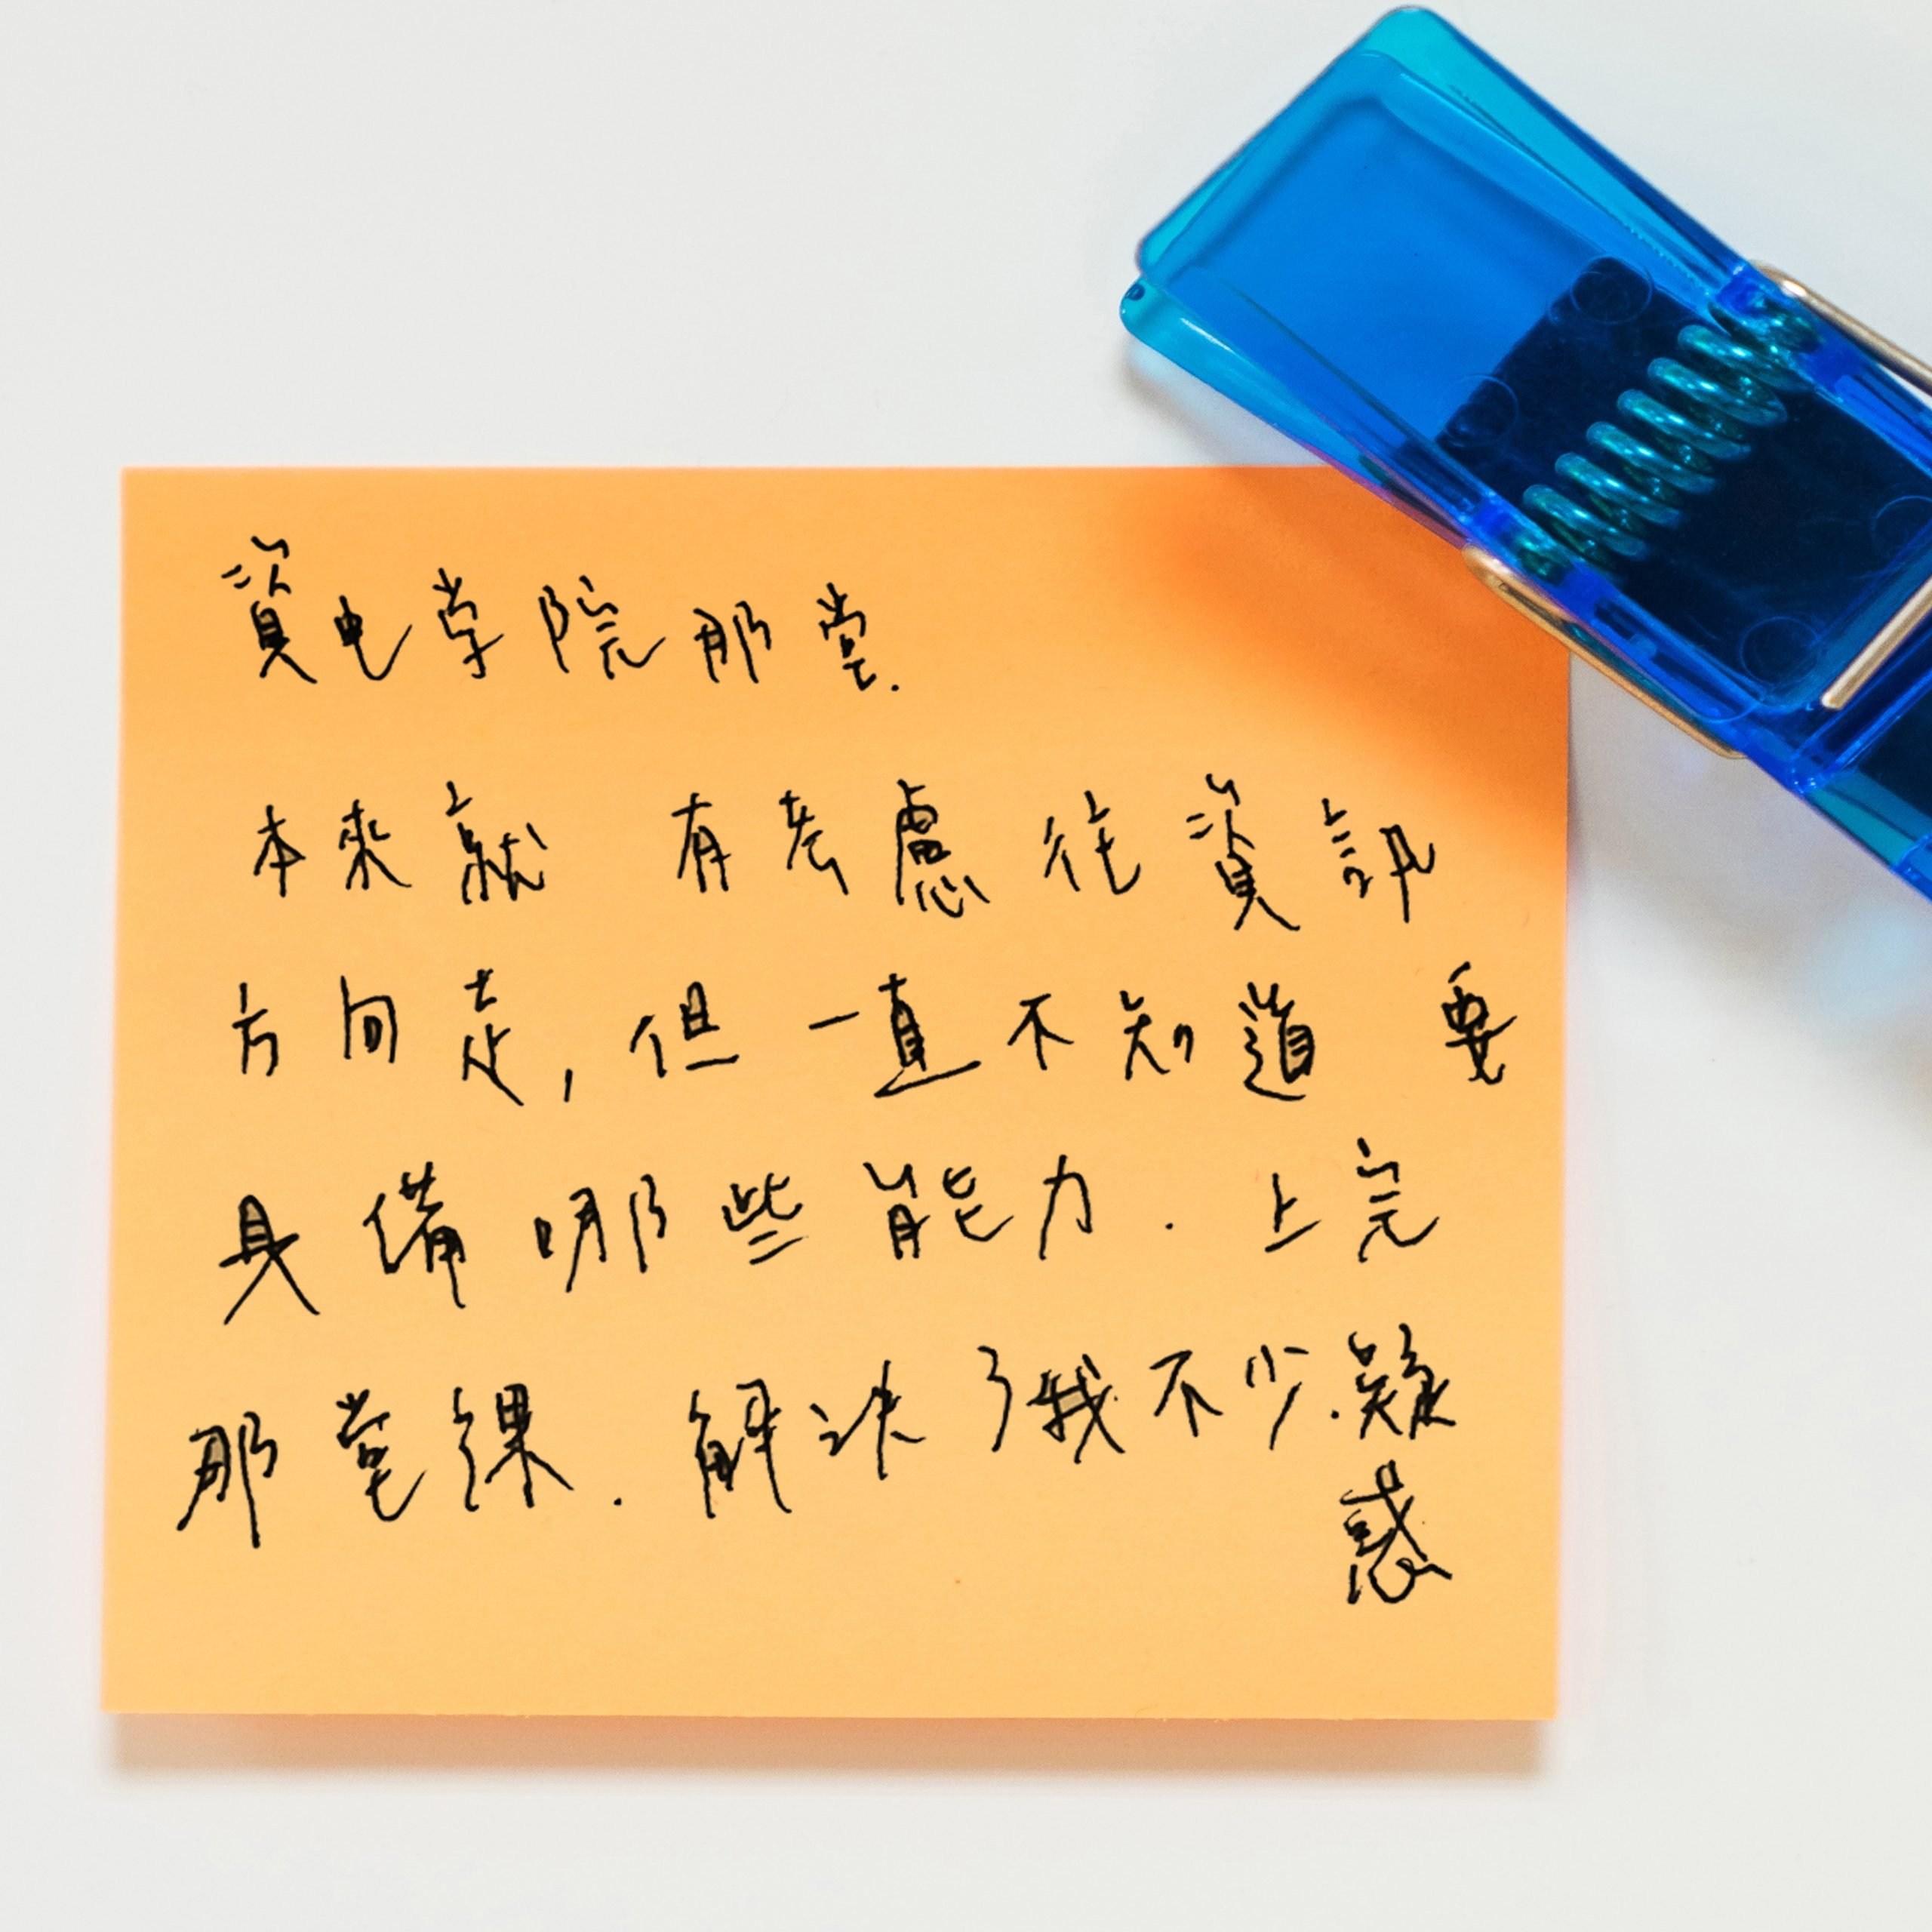 資电学院那堂.
本來就 有考慮往資訊
方向走,但一直不知道 要
具備哪些能力.上完
那堂課.解决了我不少.疑
惑